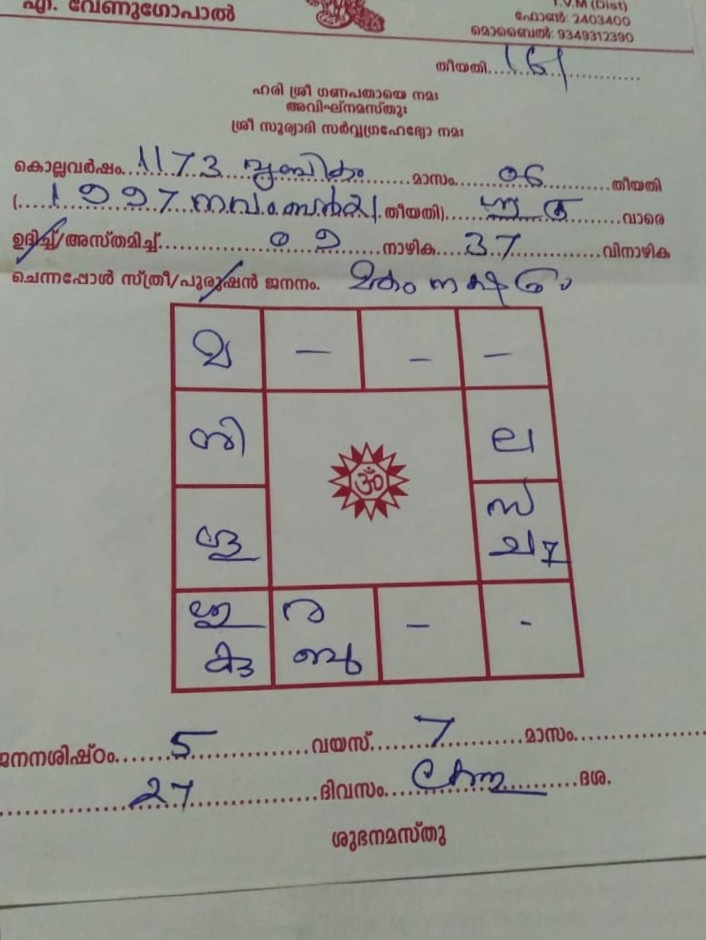 എ. വേണുഗോപാൽ
T.V.M (Dist)
ഫോൺ: 2403400
മൊബൈൽ: 9349312390
തീയതി
ഹരി ശ്രീ ഗണപതായെ നമഃ
അവിഘ്നമസ്തുഃ
ശ്രീ സൂര്യാദി സർവ്വഗ്രഹേഭ്യോ നമഃ
കൊല്ലവർഷം 1173 വൃശ്ചികം മാസം 06 തീയതി
(1997 നവംബർ 21 തീയതി) വാരെ
ഉദിച്ച്/അസ്തമിച്ച് 09 നാഴിക 37 വിനാഴിക
ചെന്നപ്പോൾ സ്ത്രീ/പുരുഷൻ ജനനം. മകം നക്ഷത്രം
മ — — —
ശി ല
സ
ച 7
കു ബു — -
ജനനശിഷ്ഠം 5 വയസ് 7 മാസം
27 ദിവസം കേതു ദശ.
ശുഭനമസ്തു